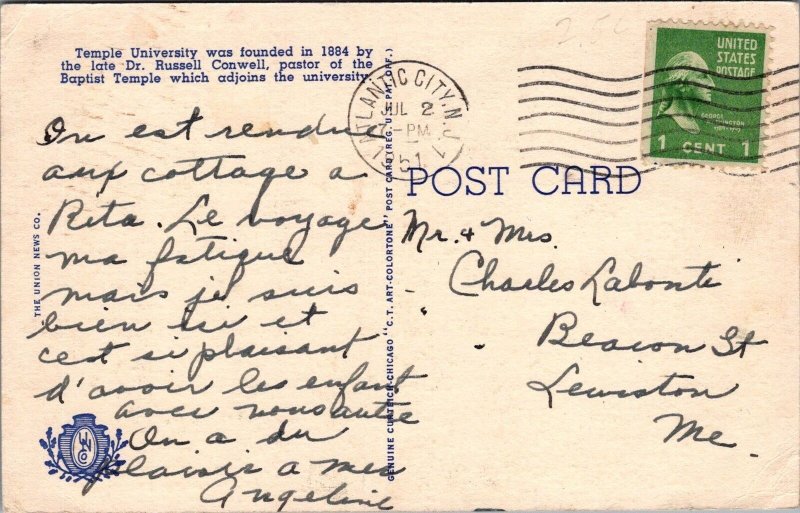 Temple University was founded in 1884 by
the late Dr. Russell Conwell, pastor of the
Baptist Temple which adjoins the university.
On est rendue
aux cottage a
Rita. Le voyage
ma fatigue
mais je suis
bien ici et
c'est si plaisant
d'avoir les enfant
avec nous autre
On a du
plaisir a mer
Angeline
THE UNION NEWS CO.
UNCO
GENUINE CURTEICH-CHICAGO "C. T. ART-COLORTONE" POST CARD (REG. U. S. PAT. OFF.)
ATLANTIC CITY, N.J. 1
JUL 2
-PM
51
UNITED
STATES
POSTAGE
GEORGE
WASHINGTON
1789-1797
1 CENT 1
POST CARD
Mr. + Mrs.
Charles Labonté
Beacon St
Lewiston
Me.